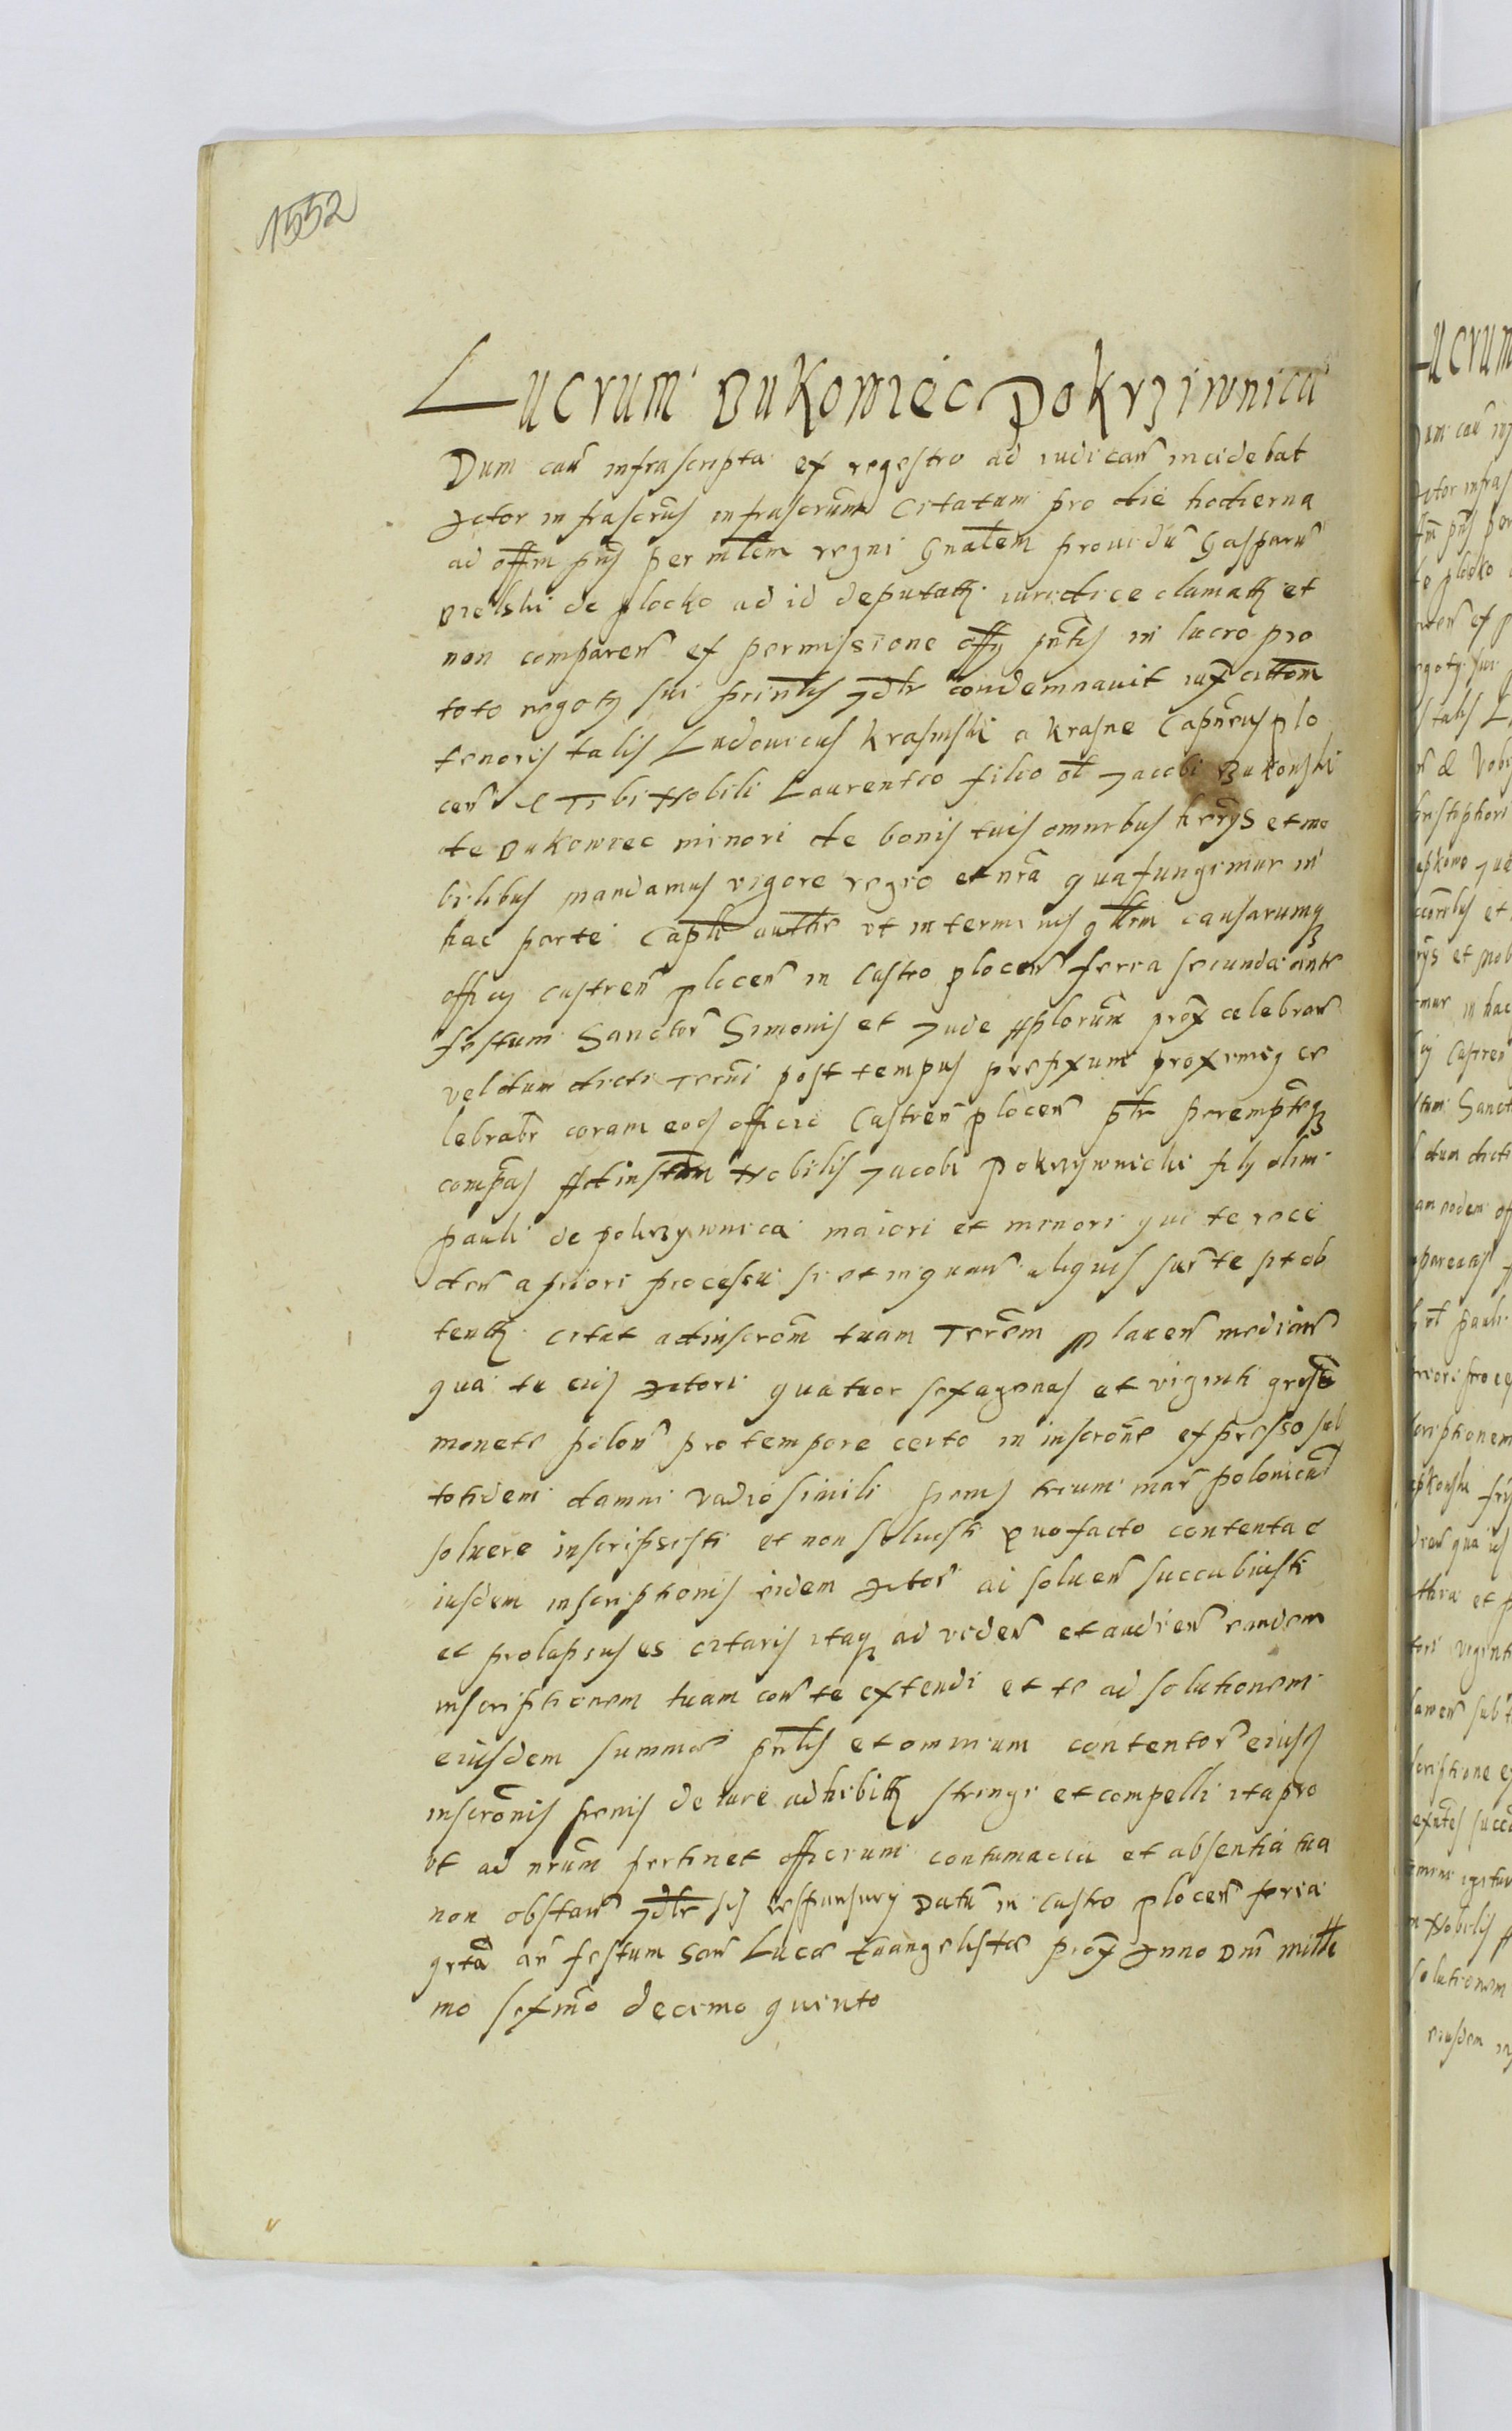 1552
Lucrum Bukowiec Pokrziwnica
Dum cau infrascripta ex regestro ad iudican incidebat
Actor infrascrus infrascrum citatum pro die hodierna
ad offm pns per mlem regni Gnalem prouidu Gasparu
Bielski de plocko ad id deputatu iuridice clamatu et
non comparen ex permissione offy pntis in lucro pro
toto negoty sui prinlis Jdlr condemnauit iux cittom
tenoris talis Ludouicus Krasinski a Krasne Capneus plo
cen Tibi Nobili Laurentio filio ol Jacobi Bukowski
de Bukowiec minori de bonis tuis omnibus hrrys et mo
bilibus mandamus vigore regio et nra qua fungimur in
hac parte Capli autthe vt in terminis qllrm causarumq
officy castren plocen in Castro plocen feria secunda ante
festum Sanctor Simonis et Jude Aplorum prox celebran
vel dum dicti Termi post tempus prefixum proxime ce
lebrabr coram eod officio Castren plocen plr perempteq
compas Ad instam Nobilis Jacobi Pokrzywnicki fily olim
Pauli de pokrzywnica maiori et minori qui te rece
den a priori processu si et inquan aliquis sur te sit ob
tentu citat ad inscrom tuam Terrem placen median
qua tu eius Actori quatuor sexagenas et viginti grosse
monete polon pro tempore certo in inscrone expresso sub
totidem damni vadio simili penis trium mar polonicu
soluere inscripsisti et non soluisti quo facto contenta e
iusdem inscriptionis eidem Actori ai soluen succubuisti
et prolapsus es citaris itaq ad viden et audien eandem
inscriptionem tuam con te extendi et te ad solutionem
eiusdem summae prnlis et omnium contentor eiusd
inscronis penis de iure adhibitu stringi et compelli ita pro
vt ad nrum pertinet officium contumacia et absentia tua
non obstan Jdlr sis responsury Datu in Castro plocen feria
qrta an festum San Lucae Euangelistae prox Anno Dni mille
mo sexmo decimo quinto